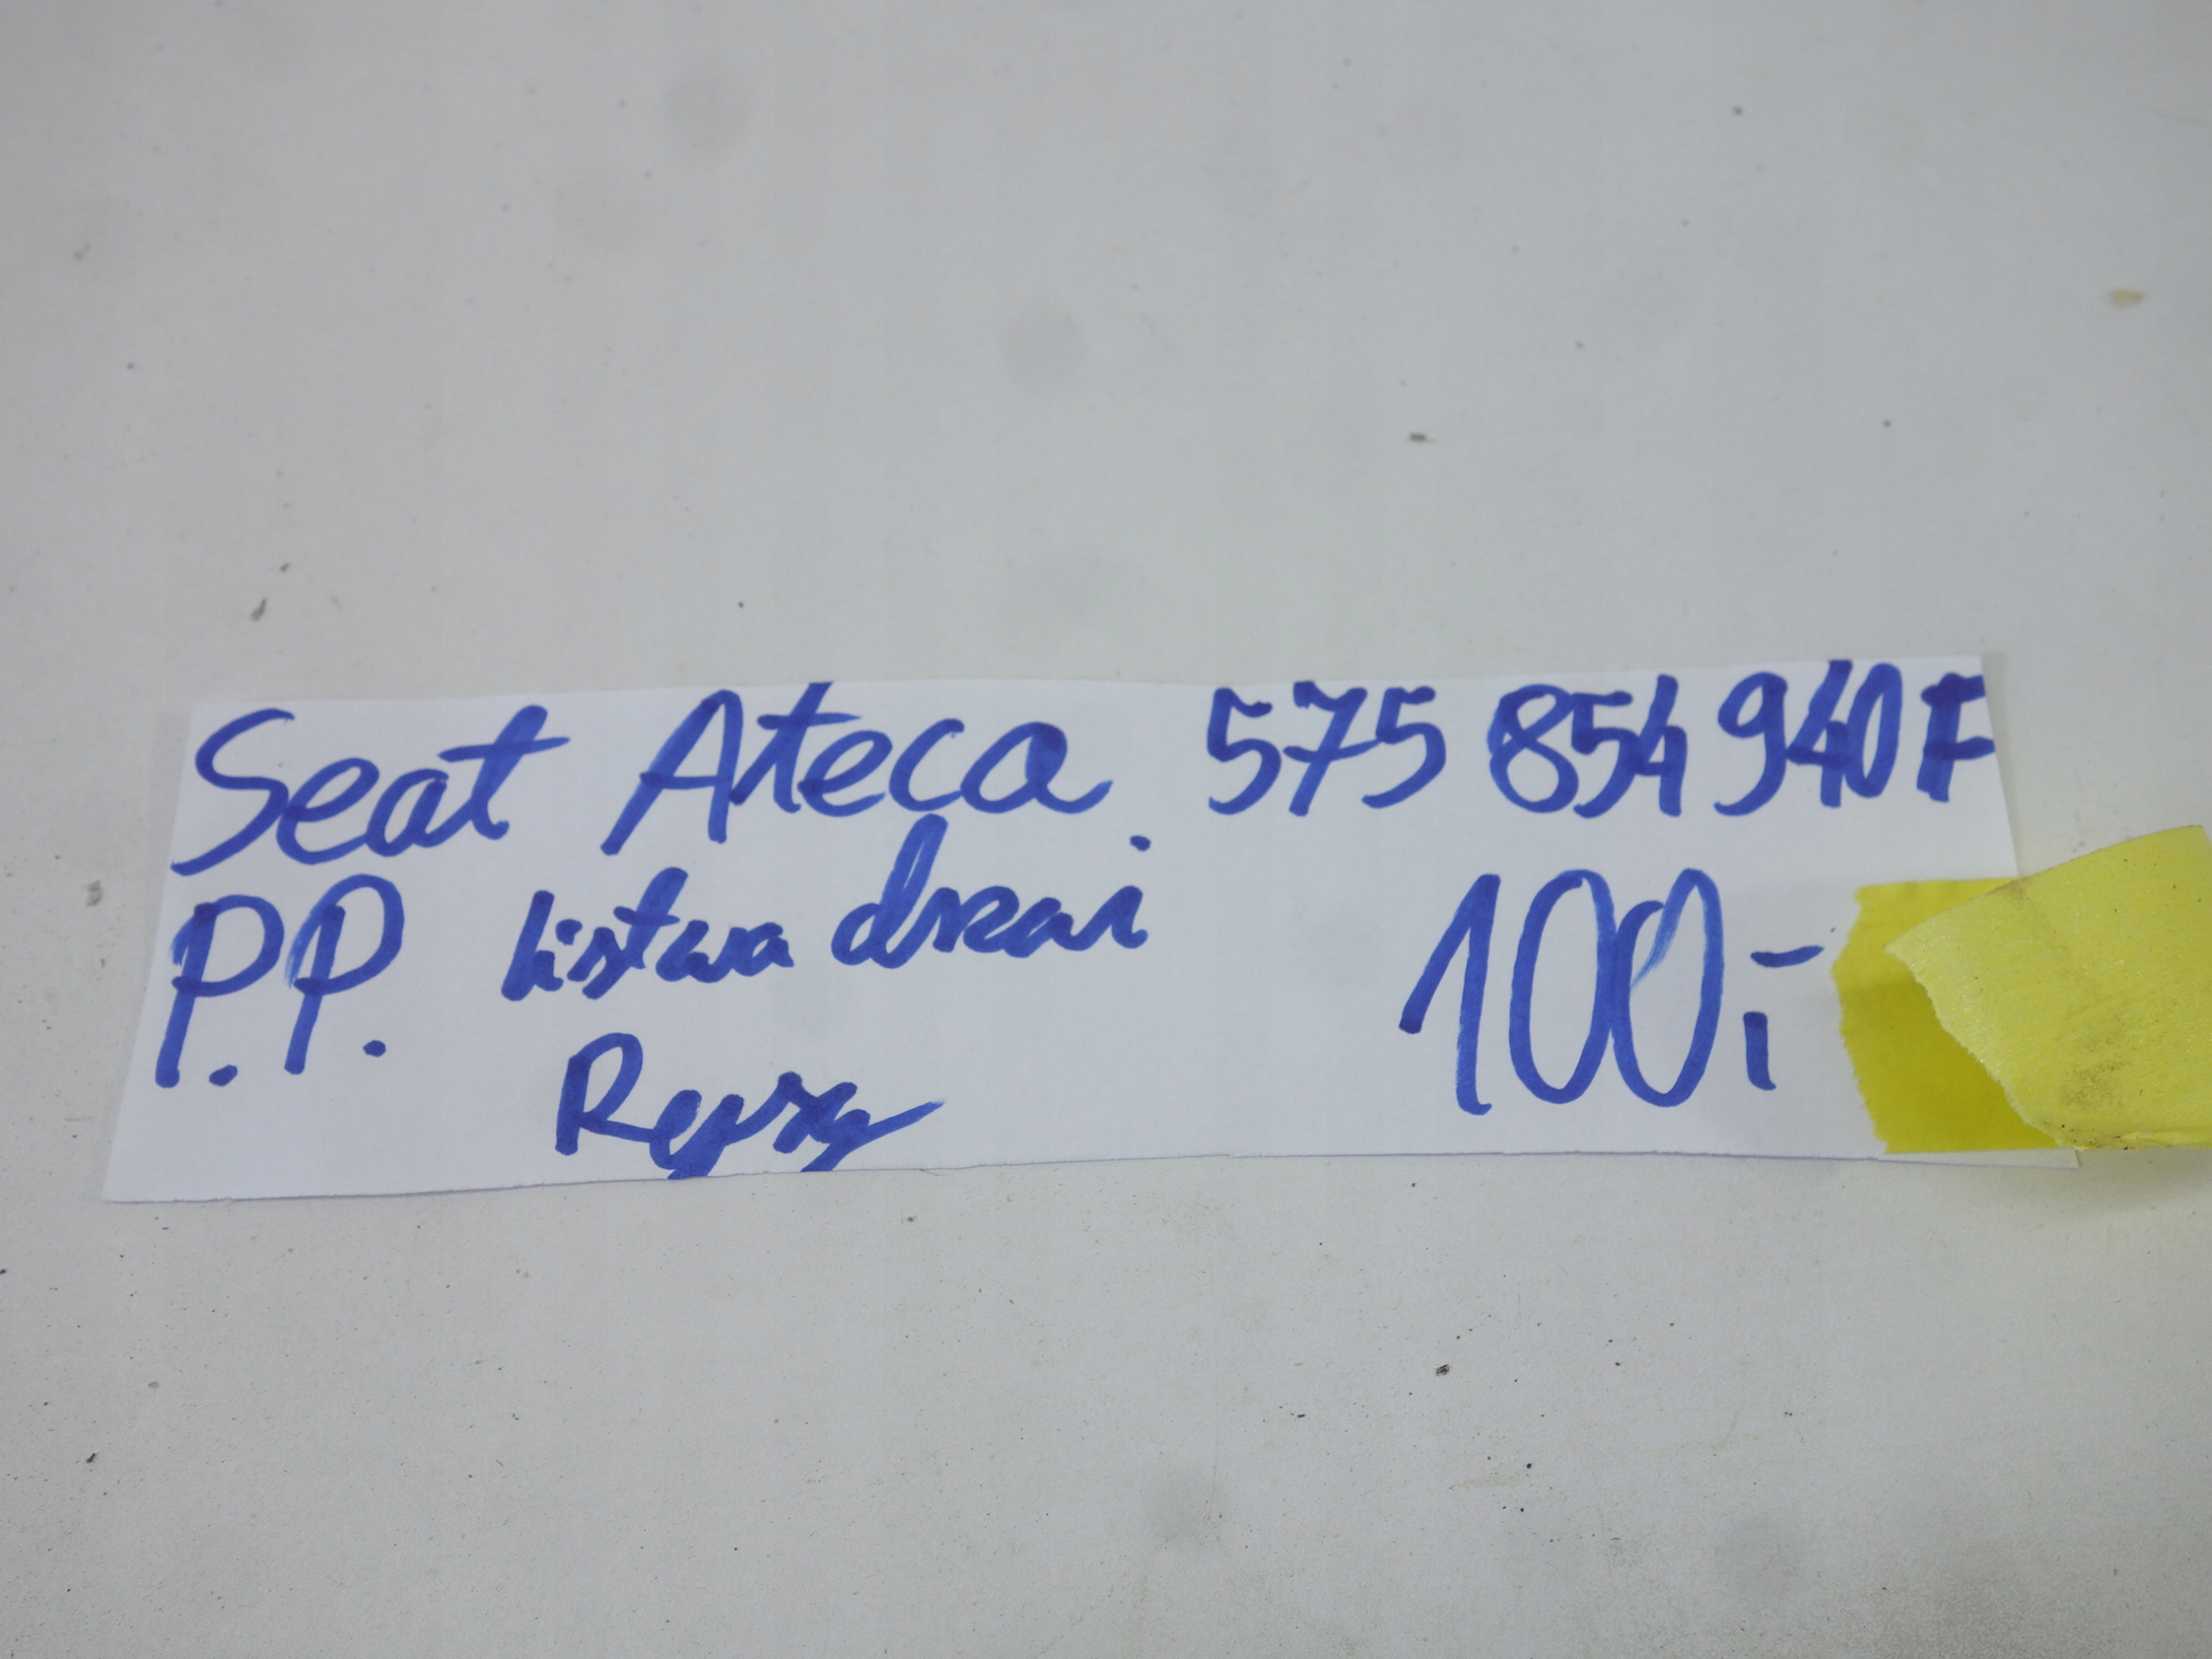 Seat Ateca 575 854 940 F
P.P. listwa drzwi 100,-